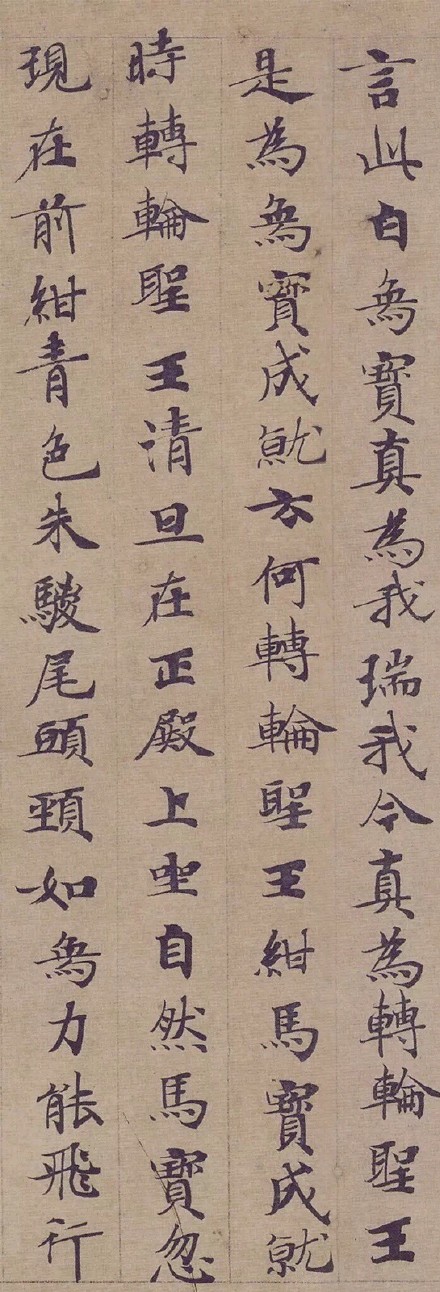 言此白象寶真為我瑞我今真為轉輪聖王
是為象寶成就云何轉輪聖王紺馬寶成就
時轉輪聖王清旦在正殿上坐自然馬寶忽
現在前紺青色朱騣尾頭頸如象力能飛行